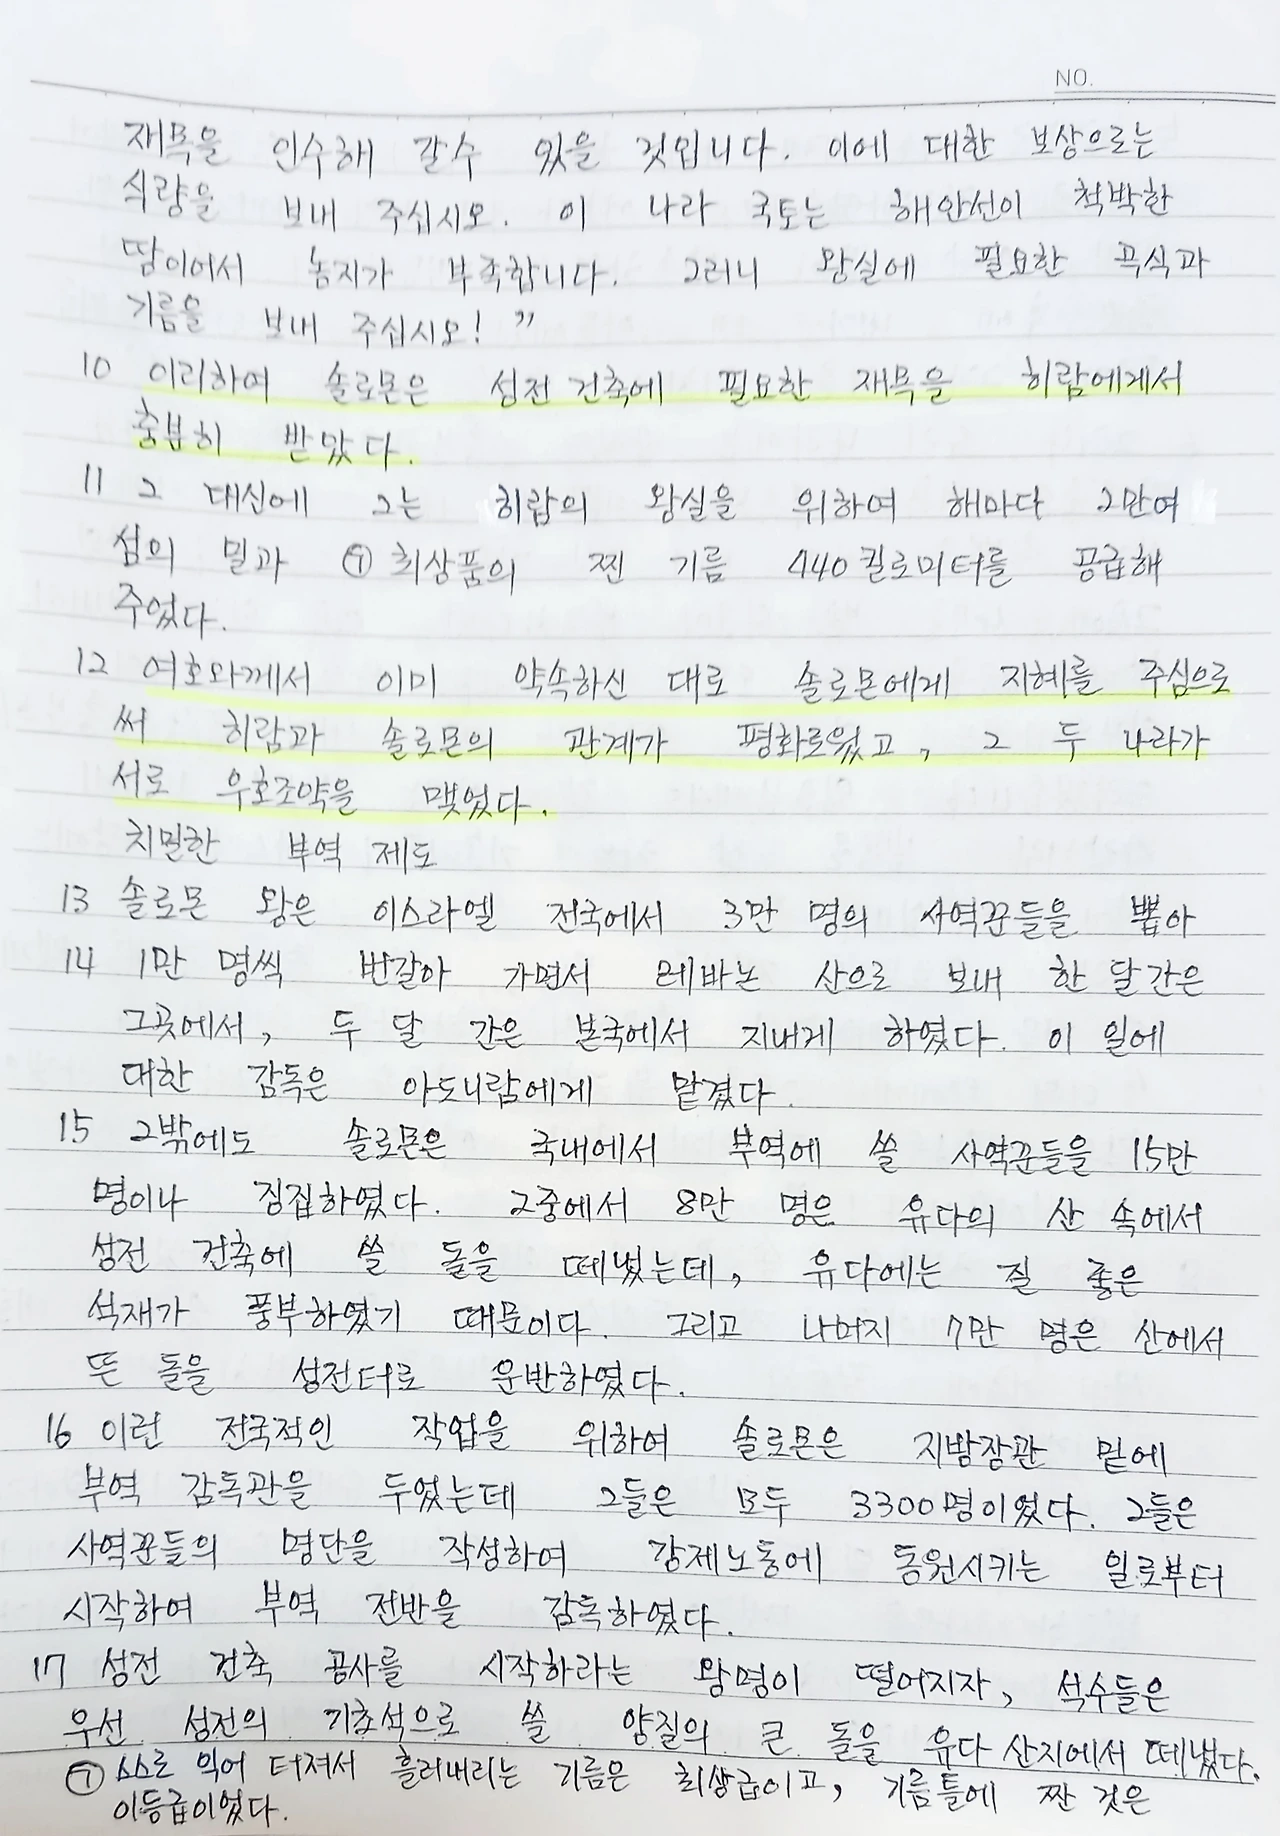 NO.
재목을 인수해 갈수 있을 것입니다. 이에 대한 보상으로는
식량을 보내 주십시오. 이 나라 국토는 해안선이 척박한
땅이어서 농지가 부족합니다. 그러니 왕실에 필요한 곡식과
기름을 보내 주십시오! ”
10 이리하여 솔로몬은 성전 건축에 필요한 재목을 히람에게서
충분히 받았다.
11 그 대신에 그는 히람의 왕실을 위하여 해마다 2만여
섬의 밀과 ㉠ 최상품의 찐 기름 440킬로미터를 공급해
주었다.
12 여호와께서 이미 약속하신 대로 솔로몬에게 지혜를 주심으로
써 히람과 솔로몬의 관계가 평화로웠고, 그 두 나라가
서로 우호조약을 맺었다.
치밀한 부역 제도
13 솔로몬 왕은 이스라엘 전국에서 3만 명의 사역꾼들을 뽑아
14 1만 명씩 번갈아 가면서 레바논 산으로 보내 한 달간은
그곳에서, 두 달 간은 본국에서 지내게 하였다. 이 일에
대한 감독은 아도니람에게 맡겼다.
15 그밖에도 솔로몬은 국내에서 부역에 쓸 사역꾼들을 15만
명이나 징집하였다. 그중에서 8만 명은 유다의 산 속에서
성전 건축에 쓸 돌을 떼냈는데, 유다에는 질 좋은
석재가 풍부하였기 때문이다. 그리고 나머지 7만 명은 산에서
뜬 돌을 성전터로 운반하였다.
16 이런 전국적인 작업을 위하여 솔로몬은 지방장관 밑에
부역 감독관을 두었는데 그들은 모두 3300명이었다. 그들은
사역꾼들의 명단을 작성하여 강제노동에 동원시키는 일로부터
시작하여 부역 전반을 감독하였다.
17 성전 건축 공사를 시작하라는 왕명이 떨어지자, 석수들은
우선 성전의 기초석으로 쓸 양질의 큰 돌을 유다 산지에서 떼냈다.
㉠ 스스로 익어 터져서 흘러내리는 기름은 최상급이고, 기름틀에 짠 것은
이등급이었다.